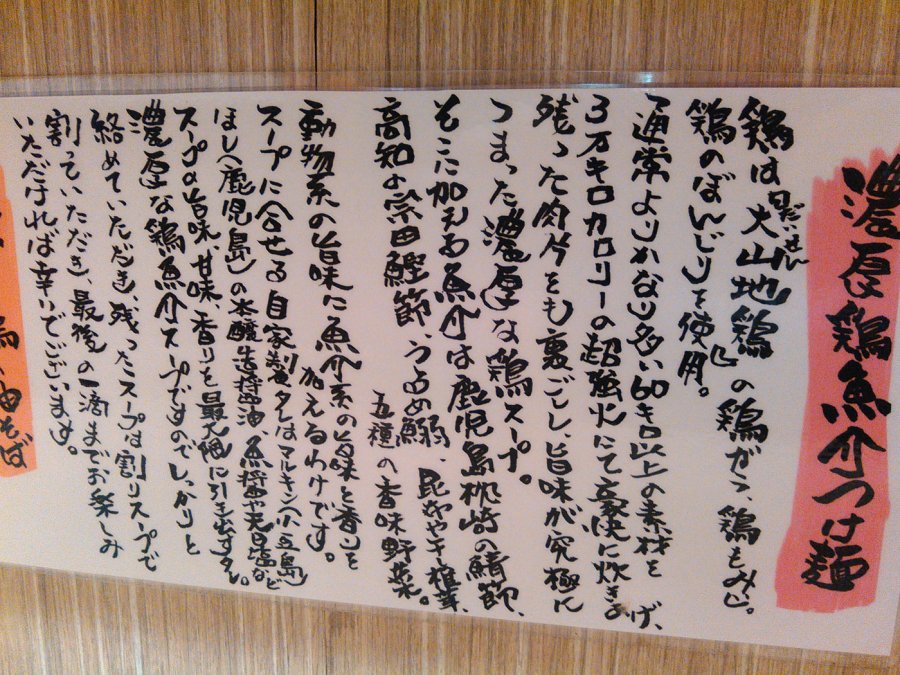 濃厚鶏魚介つけ麺
鶏は大山地鶏の鶏ガラ、鶏もみじ。
だいせん
鶏のぼんじりを使用。
通常よりかなり多い60キロ以上の素材を
3万キロカロリーの超強火にて豪快に炊きあげ、
残った肉片をも裏ごしし、旨味が究極に
つまった濃厚な鶏スープ。
そこに加える魚介は鹿児島枕崎の鯖節、
高知の宗田鰹節、うるめ鰯、昆布や干し椎茸、
五種の香味野菜。
動物系の旨味に魚介系の旨味と香りを
加えるわけです。
スープに合せる自家製タレはマルキン(小豆島)
ほし(鹿児島)の本醸造醤油、魚醤や天日塩など
スープの旨味、甘味、香りを最大限に引き出すタレ。
濃厚な鶏魚介スープですのでしっかりと
絡めていただき、残ったスープは割りスープで
割っていただき、最後の一滴までお楽しみ
いただければ幸いでございます。
油そば